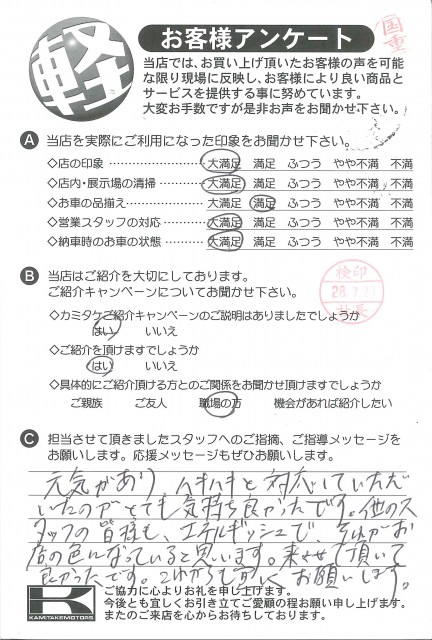 軽
お客様アンケート
国重
当店では、お買い上げ頂いたお客様の声を可能
な限り現場に反映し、お客様により良い商品と
サービスを提供する事に努めています。
大変お手数ですが是非お声をお聞かせ下さい。
A 当店を実際にご利用になった印象をお聞かせ下さい。
◇店の印象 大満足 満足 ふつう やや不満 不満
◇店内・展示場の清掃 大満足 満足 ふつう やや不満 不満
◇お車の品揃え 大満足 満足 ふつう やや不満 不満
◇営業スタッフの対応 大満足 満足 ふつう やや不満 不満
◇納車時のお車の状態 大満足 満足 ふつう やや不満 不満
B 当店はご紹介を大切にしております。
ご紹介キャンペーンについてお聞かせ下さい。
検印
社長
◇カミタケご紹介キャンペーンのご説明はありましたでしょうか
はい いいえ
◇ご紹介を頂けますでしょうか
はい いいえ
◇具体的にご紹介頂ける方とのご関係をお聞かせ頂けますでしょうか
ご親族 ご友人 職場の方 機会があれば紹介したい
C 担当させて頂きましたスタッフへのご指摘、ご指導メッセージを
お願いします。応援メッセージもぜひお願いします。
元気があり、ハキハキと対応していただ
いたのがとても気持ち良かったです。他のス
タッフの皆様も、エネルギッシュで、それがお
店の色になっていると思います。来させて頂いて
良かったです。これからも宜しくお願いします。
K
KAMITAKEMOTORS
ご協力に心よりお礼を申し上げます。
今後とも宜しくお引き立てご愛顧の程お願い申し上げます。
またのご来店を心からお待ちしております。